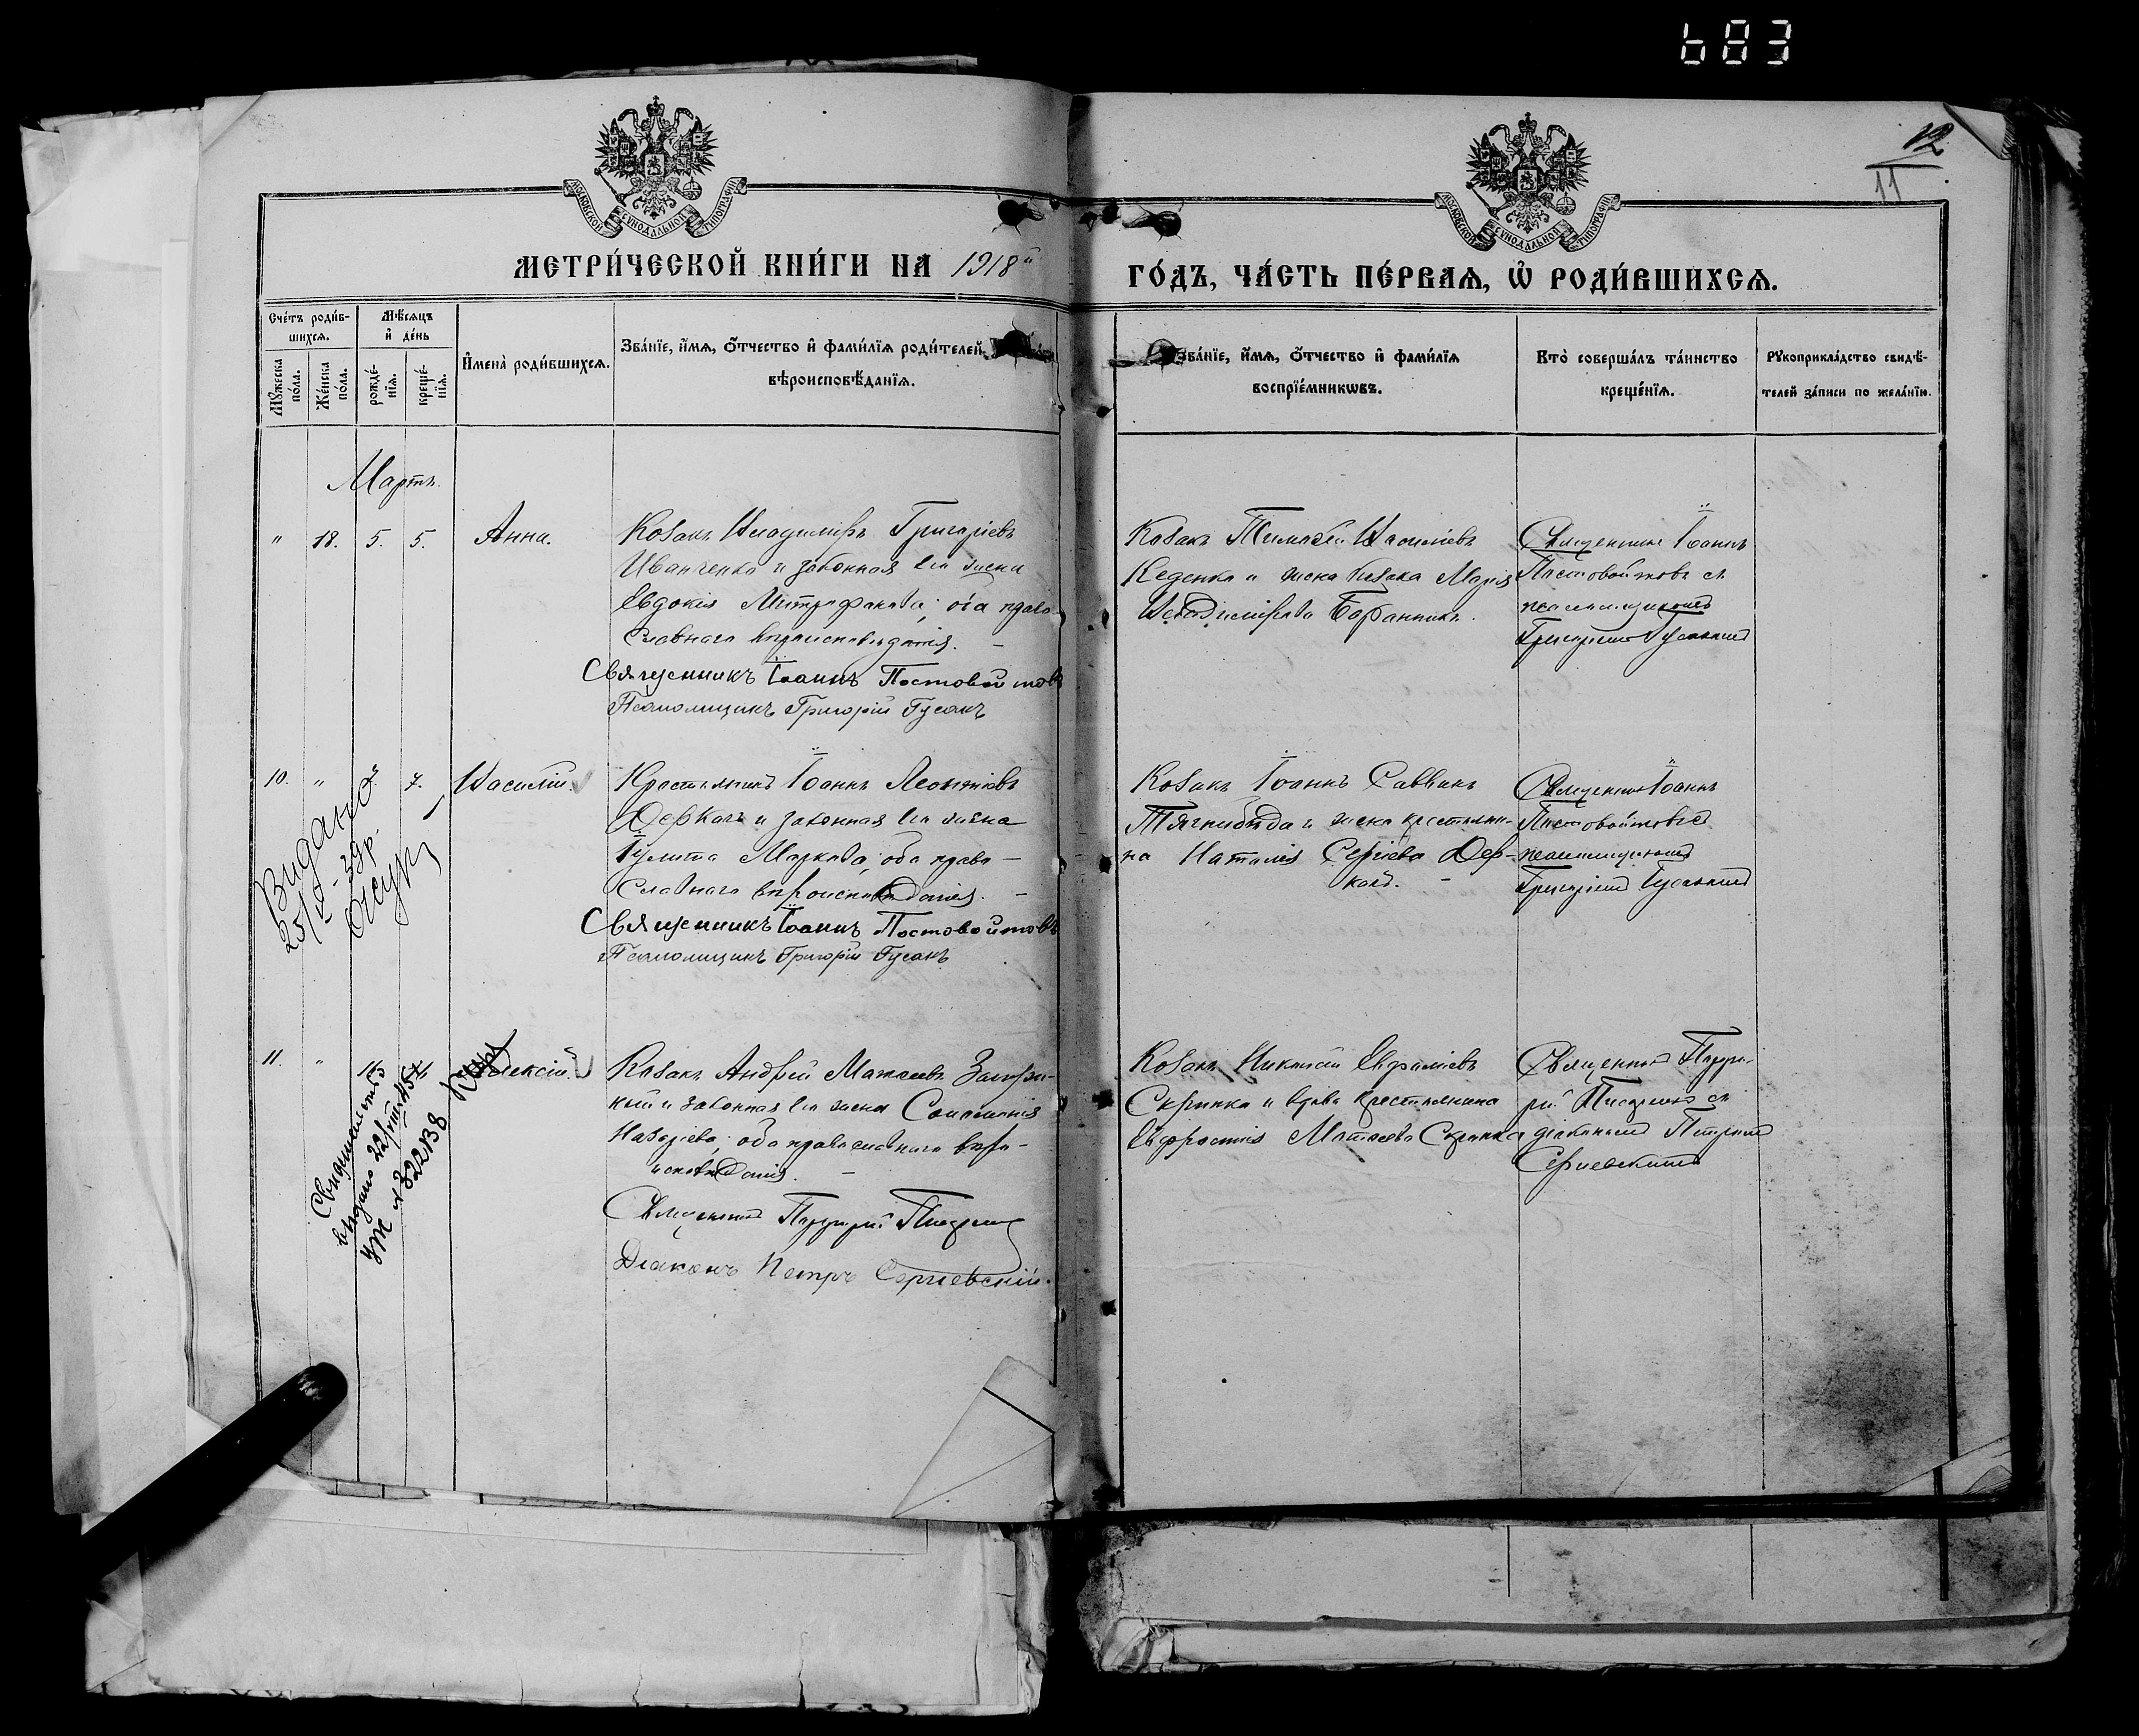 683
12
11
МОСКОВСКОЙ СѴНОДАЛЬНОЙ ТИПОГРАФІИ
МОСКОВСКОЙ СѴНОДАЛЬНОЙ ТИПОГРАФІИ
МЕТРИ́ЧЕСКОЙ КНИ́ГИ НА 1918й
ГО́ДЪ, ЧА́СТЬ ПЕ́РВАѦ, Ѡ҆ РОДИ́ВШИХСѦ.
Сче́тъ роди́в-
шихсѧ.
Мꙋ́жеска
по́ла.
Же́нска
по́ла.
Мѣ́сѧцъ
и҆ де́нь
рожде́-
нїѧ.
креще́-
нїѧ.
И҆мена̀ роди́вшихсѧ.
Зва́нїе, и҆́мѧ, ѻ҆́тчество и҆ фами́лїѧ роди́телей,
вѣроисповѣ́данїѧ.
Зва́нїе, и҆́мѧ, ѻ҆́тчество и҆ фами́лїѧ
воспрїе́мникѡвъ.
Кто̀ соверша́лъ та́инство
креще́нїѧ.
Рꙋкоприкла́дство свидѣ́-
телей за́писи по жела́нїю.
Мартъ.
" 18. 5. 5. Анна.
Козакъ Владиміръ Григоріевъ
Иванченко и законная его жена
Евдокія Митрофанова; оба право-
славнаго вѣроисповѣданія.
Священникъ Іоаннъ Постовойтовъ
Псаломщикъ Григорій Гусакъ
Козакъ Тимофей Василіевъ
и жена козака Марія
Владимірова
Священникъ Іоаннъ
Постовойтовъ съ
псаломщикомъ
Григоріемъ Гусакомъ
10. " 7. Василій.
Крестьянинъ Іоаннъ Леонтіевъ
Деркачъ и законная его жена
Іулита Маркова; оба право-
славнаго вѣроисповѣданія.
Священникъ Іоаннъ Постовойтовъ
Псаломщикъ Григорій Гусакъ
Козакъ Іоаннъ Саввинъ
Тягнибѣда и жена крестьяни-
на Наталія Сергіева Дер-
качъ.
Священникъ Іоаннъ
Постовойтовъ съ
псаломщикомъ
Григоріемъ Гусакомъ
Видано
25/V-29р.
11. " Алексій.
Козакъ Андрей Матѳеевъ
и законная его жена Соломонія
Назаріева; оба православнаго вѣро-
исповѣданія.
Священникъ Порфирій
Діаконъ Петръ Сергіевскій.
Козакъ
Скрипка и вдова крестьянина
Евфросинія Матѳеева Скрипка
Священникъ Порфи-
рій съ
діакономъ Петромъ
Сергіевскимъ
Свидетельство
выдано 22/VIII-45г
№ 322138